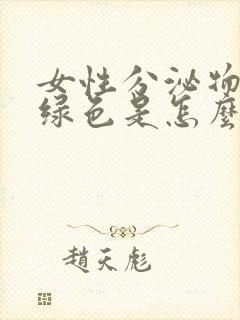 女性分泌物
绿色是怎麽
趙天彪